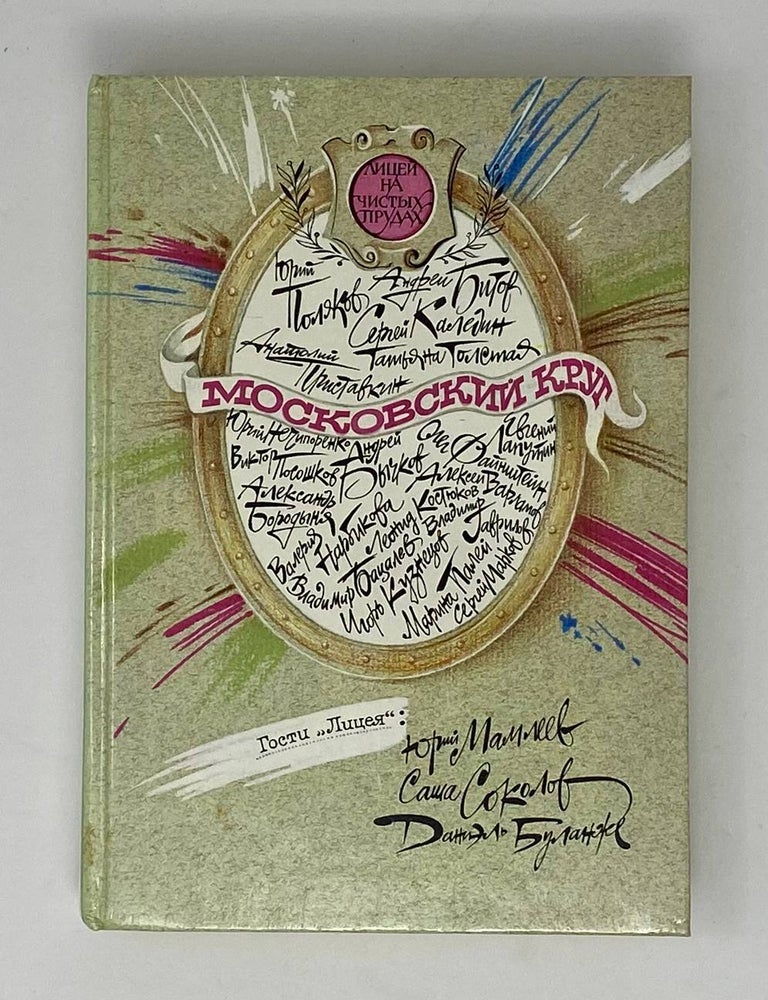 ЛИЦЕЙ
НА
ЧИСТЫХ
ПРУДАХ
Юрий Поляков
Андрей Битов
Сергей Каледин
Анатолий Приставкин
Татьяна Толстая
МОСКОВСКИЙ КРУГ
Юрий Нечипоренко
Андрей Бычков
Олег Файнштейн
Евгений Лапутин
Виктор Посошков
Алексей Варламов
Александр Бородыня
Костюков
Владимир Гаврилов
Валерия Нарбикова
Леонид
Владимир Бацалев
Игорь Кузнецов
Марина Палей
Сергей Марков
Гости „Лицея“:
Юрий Мамлеев
Саша Соколов
Даниэль Буланже